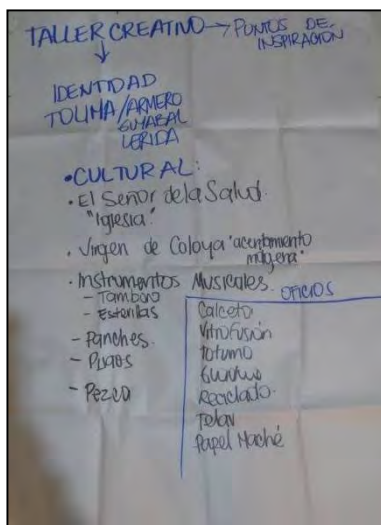 TALLER CREATIVO → PUNTOS DE
INSPIRACIÓN
IDENTIDAD
TOLIMA/ARMERO
GUAYABAL
LERIDA
•CULTURAL:
• El Señor de la Salud.
"Iglesia".
• Virgen de Coloya
• Instrumentos Musicales.
- Tamboro
- Esterillas
- Panches.
- Pijaos
OFICIOS
Calceto
Vitrofusión
totumo
Reciclado.
Telar
Papel Maché